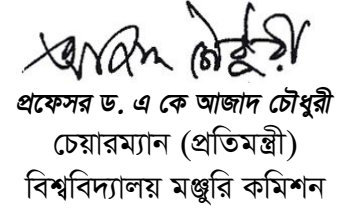 আজাদ চৌধুরী
প্রফেসর ড. এ কে আজাদ চৌধুরী
চেয়ারম্যান (প্রতিমন্ত্রী)
বিশ্ববিদ্যালয় মঞ্জুরি কমিশন